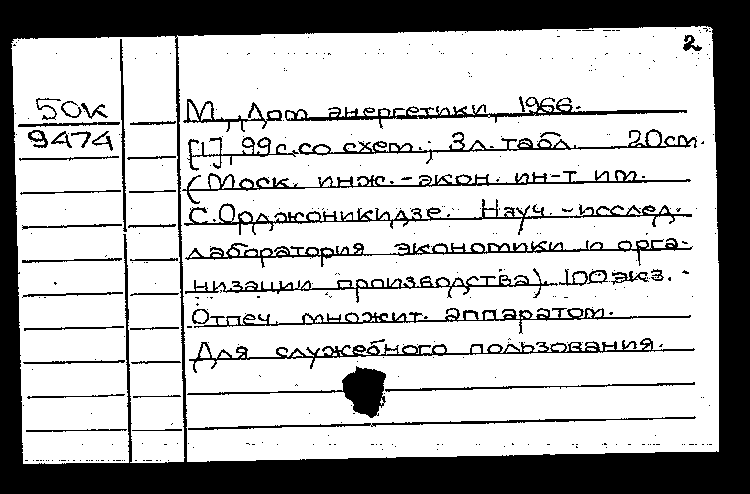 2
50К М., „Дом энергетики, 1966.
9474 [1], 99 с. со схем.; 3 л. табл. 20 см.
(Моск. инж.-экон. ин-т им.
С. Орджоникидзе. Науч.-исслед.
лаборатория экономики и орга-
низации производства). 100 экз.
Отпеч. множит. аппаратом.
Для служебного пользования.